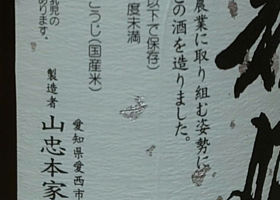 農業に取り組む姿勢に
の酒を造りました。
以下で保存)
度未満
こうじ(国産米)
あります。
製造者
愛知県愛西市
山忠本家